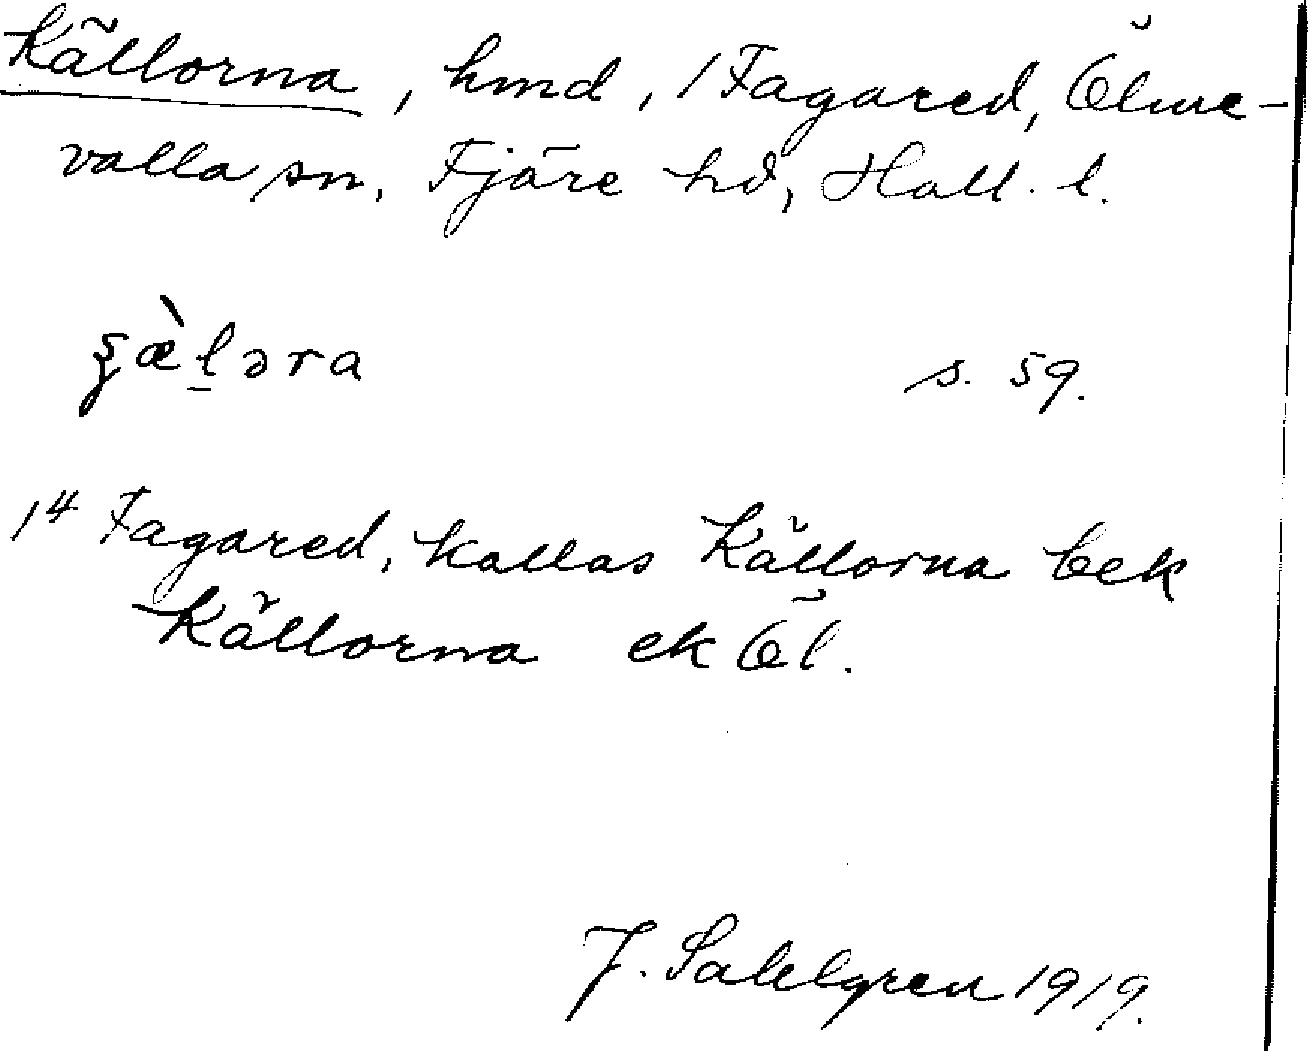 Källorna, hmd, 1 Fagared, Ölme-
valla sn, Fjäre hd, Hall. l.
s. 59.
1⁴ Fagared, kallas Källorna bek
Källorna ek Öl.
J. Sahlgren 1919.